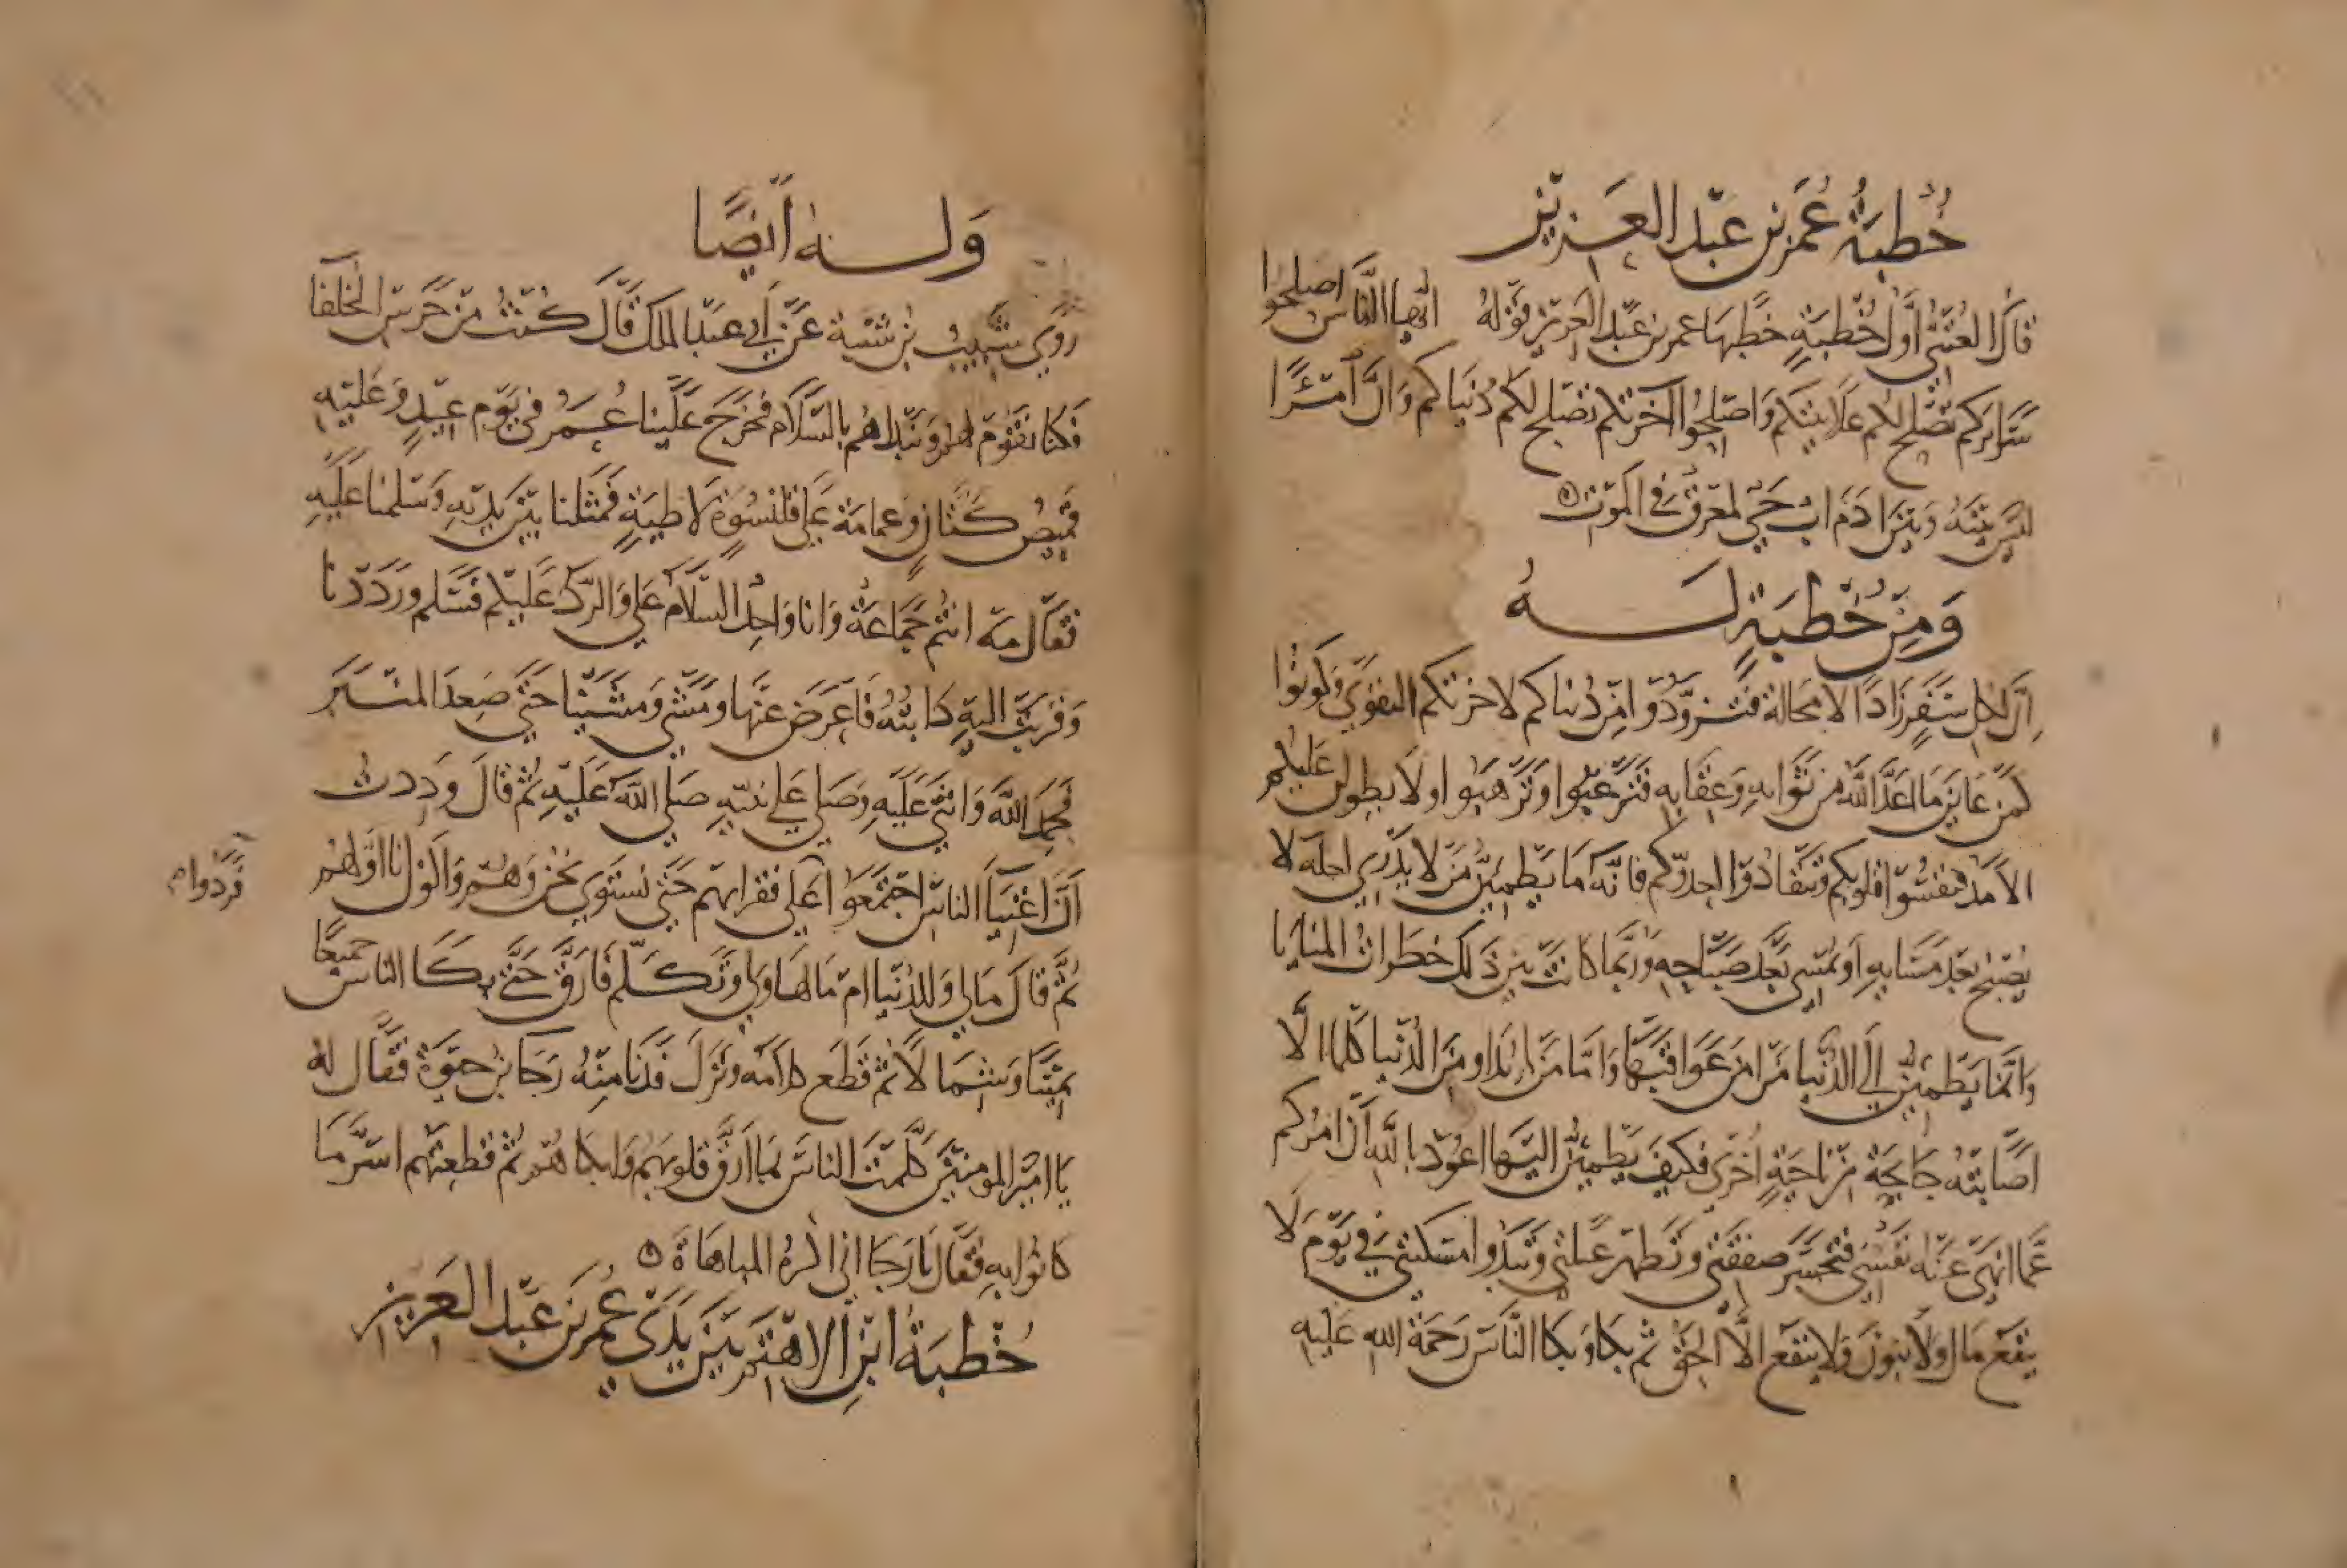 خُطبَةُ عُمَر بن عبد العَزيز
قال العُتبي أوَّل خُطبَةٍ خطبها عمر بن عبد العزيز قوله ايها الناس اصلحوا
سَرايركم تصلح لكم علانيتكم واصلحوا اخرتكم تصلح لكم دُنياكم وانَّ امرًا
ليس بينه وبين ادَم اب حَي لمعرق في الموت
وَمِن خُطبَةٍ لَــهُ
اِن لكل سَفرٍ زادًا لا محالة فتزوَّدُوا من دُنياكم لاخرتكم التقوى وكونوا
كمن عاين ما اعدَّ الله من ثوابه وعقابه فترغبوا وترهبوا ولا يطولن عليكم
الامد فتقسُوا قلوبكم وتنقادُوا لعدوكم فانه ما يطمين من لا يدري لعله لا
يُصبح بعد مسَايه او يُمسي بعد صباحه ورُبما كانت بين ذلك خطرات المنايا
وانما يطمين الي الدُنيا من امن عواقبها واما من يداوي من الدُنيا كلما الا
اصابته جايحَة من ناحيةٍ اُخرى فكيف يطمين اليها اعوذ بالله ان امركم
عما انهى عنه نفسي فتخسر صفقتي وتظهر عيلتي وتبدوا مسكنتي في يوم لا
ينفع مال ولا بنون ولا ينفع الا الحق ثم بكا وبكا الناس رحمة الله عليه
وَلــه ايضًا
رَوى شبيب بن شيبة عن ابي عبد الملك قال كُنت من حَرس الخلفا
فكنا نقوم لهم ونبداهم بالسلام فخرج علينا عُمَر في يوم عيدٍ وعليه
قميص كتان وعمامة على قلنسوة لاطيةٍ فمثلنا بين يديه وسلمنا عليه
فقال مه انتم جماعة وانا واحد السلام علي والرد عليكم فسلم ورددنا
وقربت اليه دابته فاعرض عنها ومشى ومشينا حتى صعد المنبر
فحمد الله واثنى عليه وصلى على نبيه صلى الله عليه ثم قال وددت
ان اغنيا الناس اجتمعوا على فقرايهم حتى نستوي نحن وهم واكون انا اولهم
فردوا م
ثم قال مالي وللدُنيا ام مالها ولي وتكلم فارق حتى بكا الناس جميعًا
يمينا وشمالا ثم قطع كلامه ونزل فدنا منه رجا بن حيوة فقال له
يا امير المومنين كلمت الناس بما ارق قلوبهم وابكاهم ثم قطعتهم اسَرَّ ما
كانوا به فقال يا رجا اني اكره المباهاة
خُطبَة ابن الاهتم بين يدَي عُمر بن عبد العَزيز